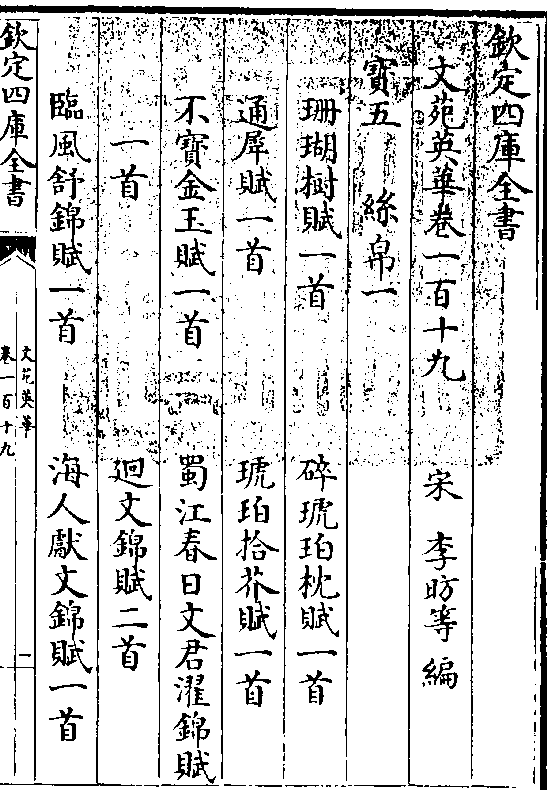 欽定四庫全書
文苑英華卷一百十九　宋　李昉等　編
寶五　絲帛一
珊瑚樹賦一首　碎琥珀枕賦一首
通犀賦一首　琥珀拾芥賦一首
不寶金玉賦一首　蜀江春日文君濯錦賦
一首　迴文錦賦二首
臨風舒錦賦一首　海人獻文錦賦一首
欽定四庫全書
文苑英華
卷一百十九
一